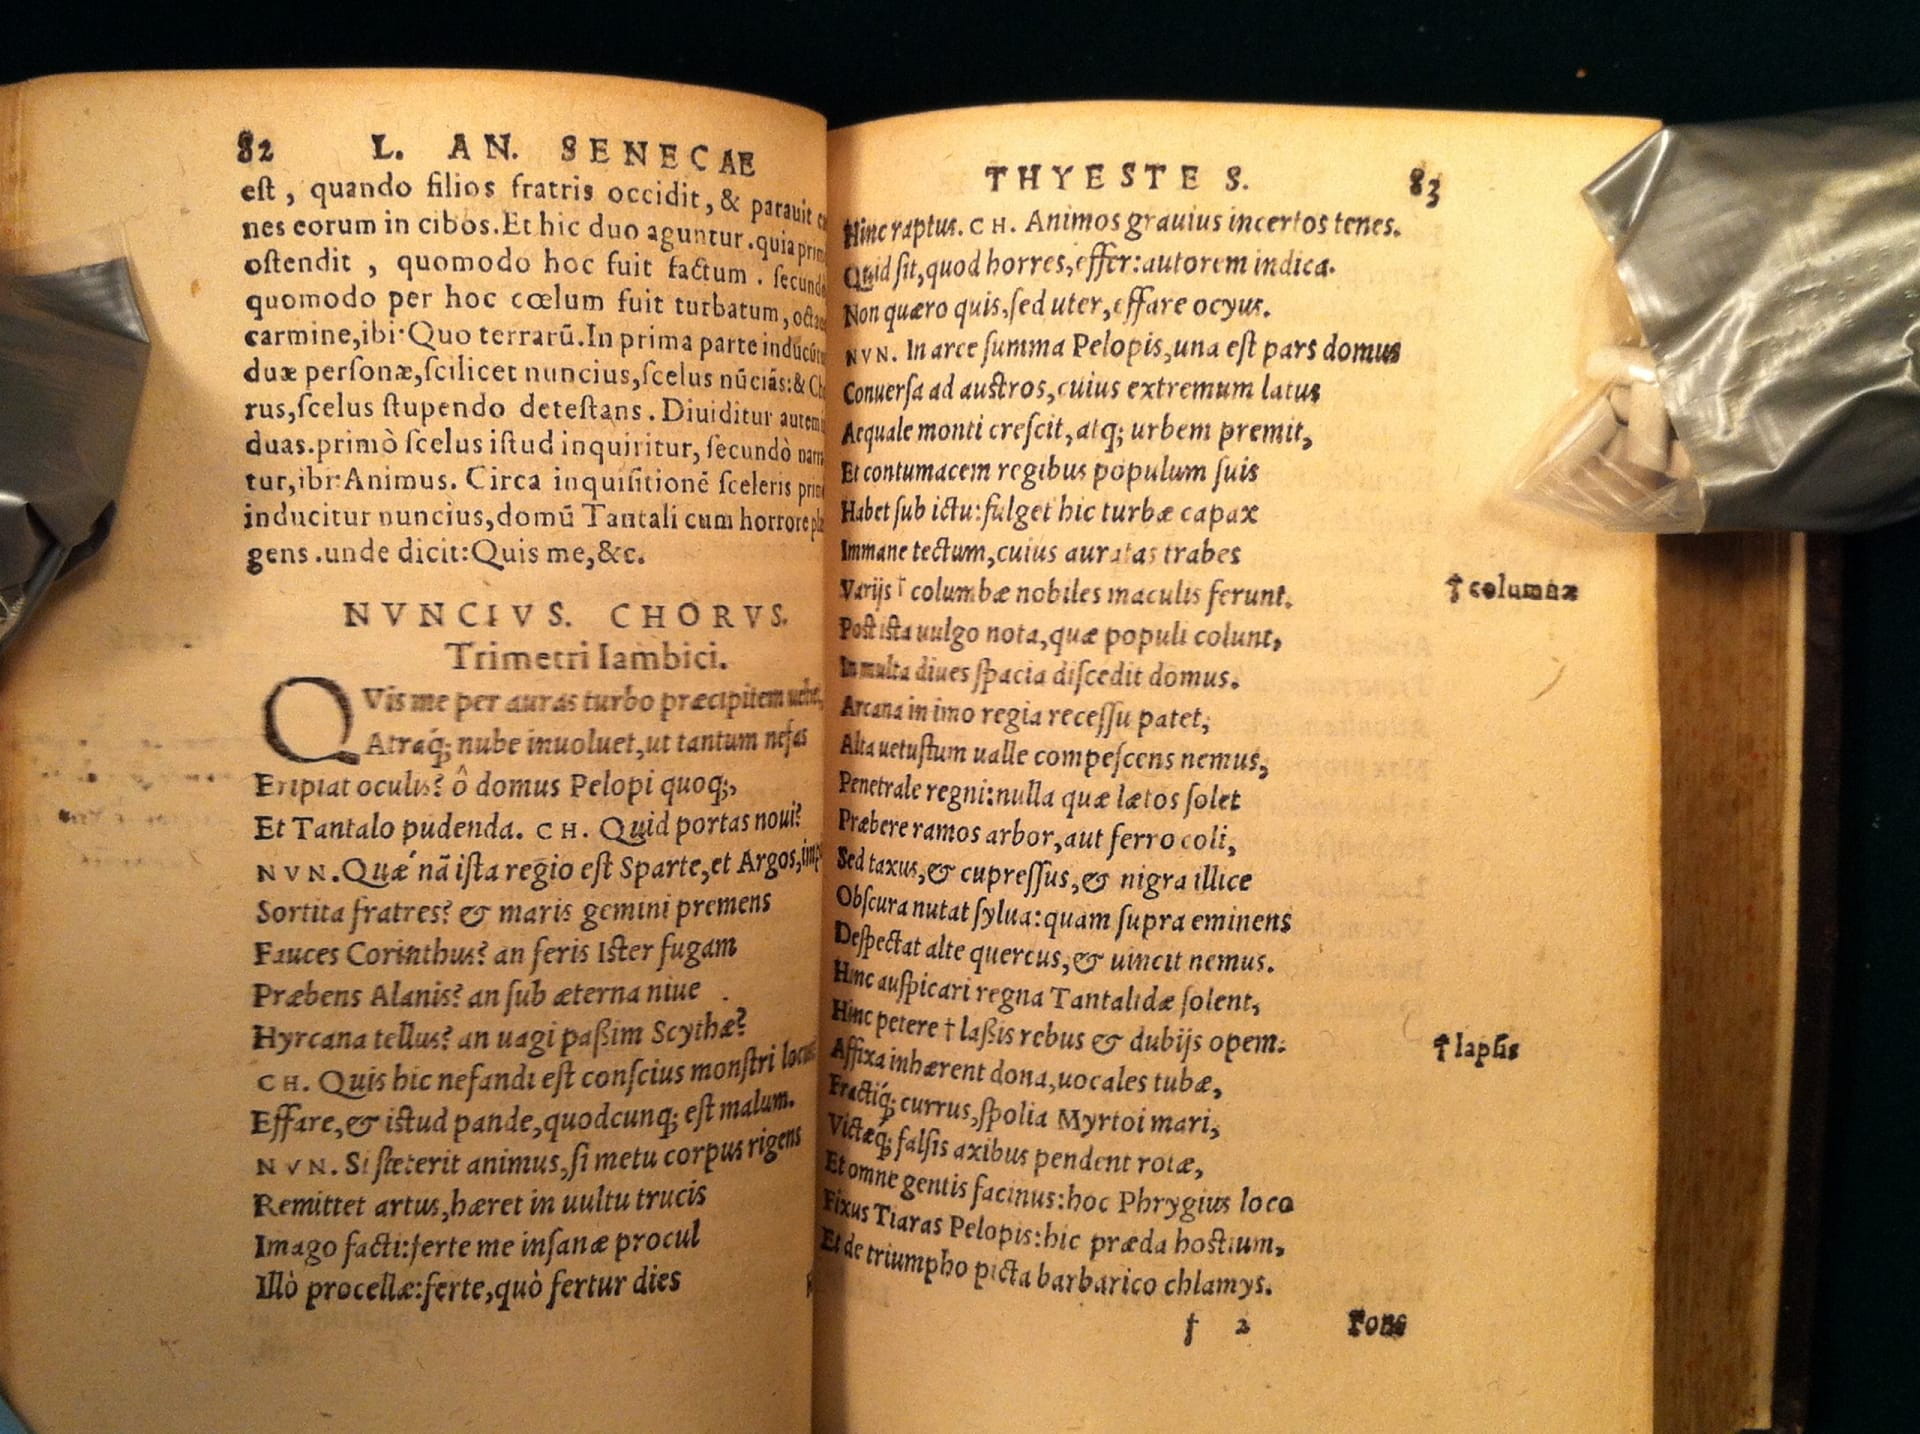 82 L. AN. SENECAE
est, quando filios fratris occidit, & parauit
nes eorum in cibos. Et hic duo aguntur. quia
ostendit, quomodo hoc fuit factum. secundo
quomodo per hoc cœlum fuit turbatum,
carmine, ibi: Quo terrarū. In prima parte
duæ personæ, scilicet nuncius, scelus nūciās: &
rus, scelus stupendo detestans. Diuiditur autem
duas. primò scelus istud inquiritur, secundò
tur, ibi: Animus. Circa inquisitionē sceleris
inducitur nuncius, domū Tantali cum horrore
gens. unde dicit: Quis me, &c.
NVNCIVS. CHORVS.
Trimetri Iambici.
QVis me per auras turbo præcipitem uehet,
Atraq; nube inuoluet, ut tantum nefas
Eripiat oculis? ô domus Pelopi quoq;,
Et Tantalo pudenda. CH. Quid portas noui?
NVN. Quæ nā ista regio est Sparte, et Argos,
Sortita fratres? & maris gemini premens
Fauces Corinthus? an feris Ister fugam
Præbens Alanis? an sub æterna niue
Hyrcana tellus? an uagi paßim Scythæ?
CH. Quis hic nefandi est conscius monstri locus
Effare, & istud pande, quodcunq; est malum.
NVN. Si steterit animus, si metu corpus rigens
Remittet artus, hæret in uultu trucis
Imago facti: ferte me insanæ procul
Illò procellæ: ferte, quò fertur dies
THYESTES. 83
Hinc raptus. CH. Animos grauius incertos tenes.
Quid sit, quod horres, effer: autorem indica.
Non quæro quis, sed uter, effare ocyus.
NVN. In arce summa Pelopis, una est pars domus
Conuersa ad austros, cuius extremum latus
Aequale monti crescit, atq; urbem premit,
Et contumacem regibus populum suis
Habet sub ictu: fulget hic turbæ capax
Immane tectum, cuius auratas trabes
Varijs † columbæ nobiles maculis ferunt.
† columnæ
Post ista uulgo nota, quæ populi colunt,
In multa diues spacia discedit domus.
Arcana in imo regia recessu patet,
Alta uetustum ualle compescens nemus,
Penetrale regni: nulla quæ lætos solet
Præbere ramos arbor, aut ferro coli,
Sed taxus, & cupressus, & nigra illice
Obscura nutat sylua: quam supra eminens
Despectat alte quercus, & uincit nemus.
Hinc auspicari regna Tantalidæ solent,
Hinc petere † laßis rebus & dubijs opem.
† lapsis
Affixa inhærent dona, uocales tubæ,
Fractiq́; currus, spolia Myrtoi mari,
Victæq́; falsis axibus pendent rotæ,
Et omne gentis facinus: hoc Phrygius loco
Fixus Tiaras Pelopis: hic præda hostium,
Et de triumpho picta barbarico chlamys.
f 2 Fons